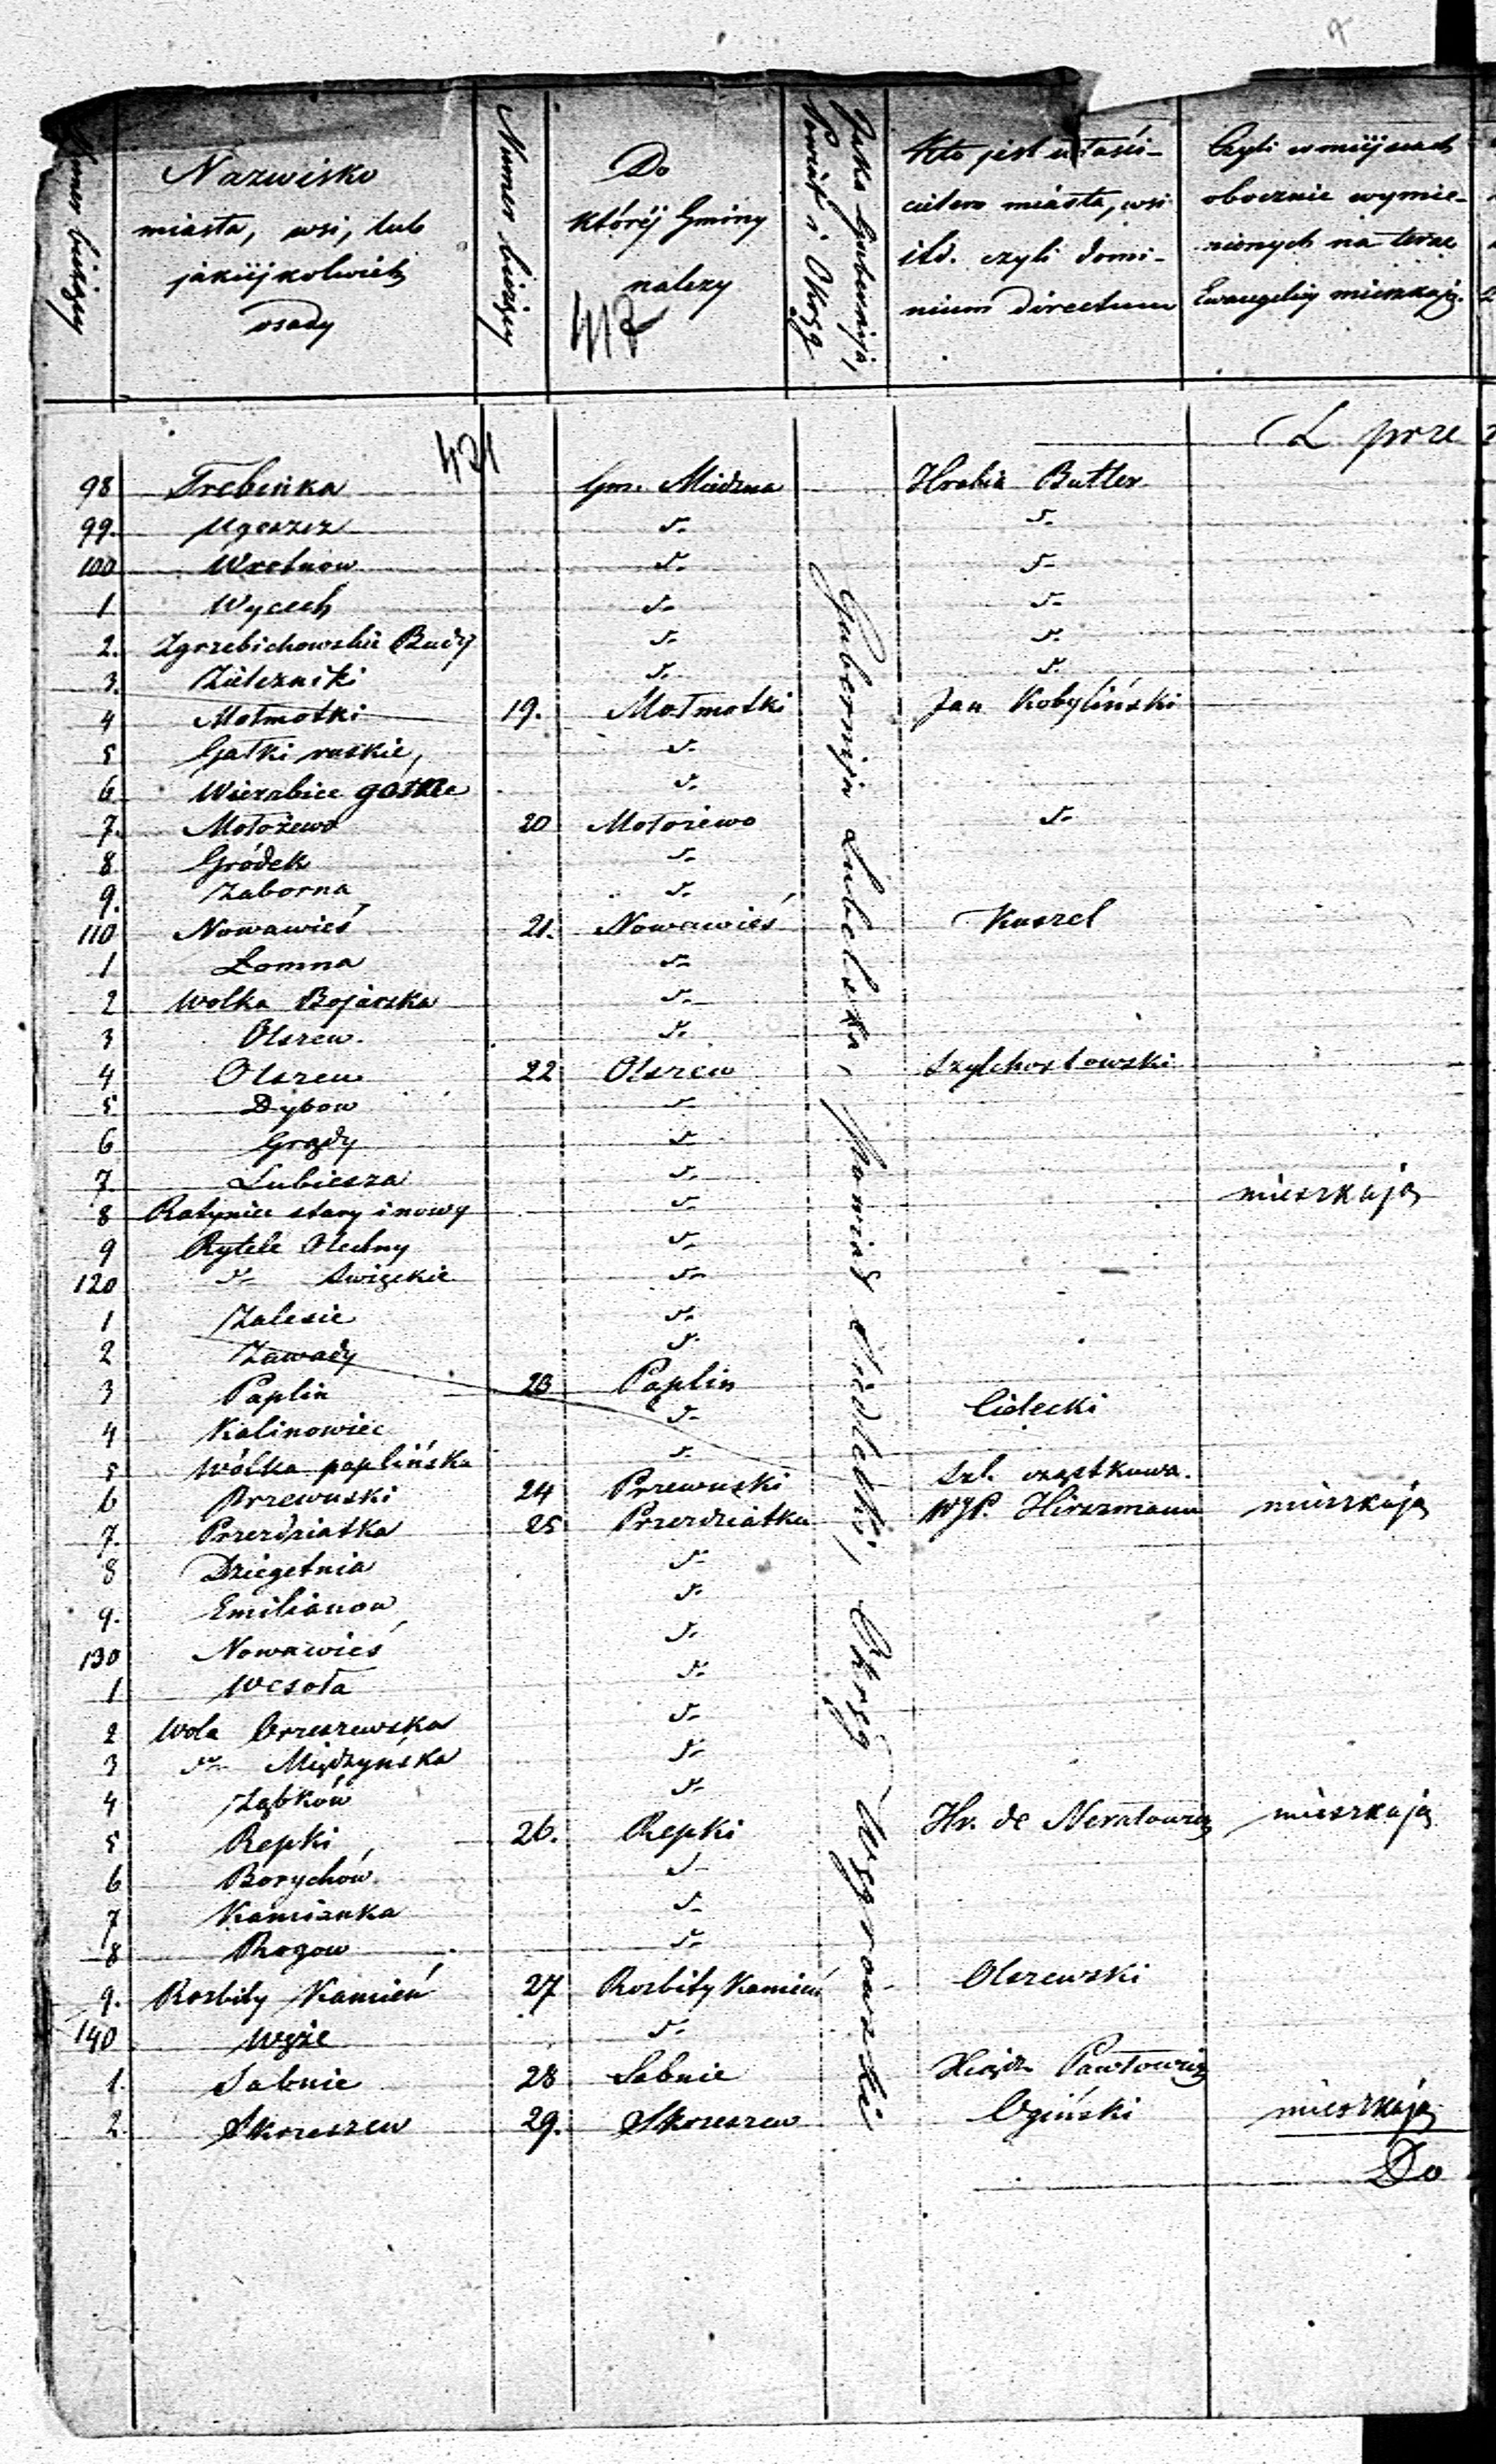 Numer bieżący
Nazwisko
miasta, wsi, lub
jakiéjkolwiek
osady
Numer bieżący
Do
któréj Gminy
należy
417
Jaka Gubernija,
Powiat i Okręg
Kto jest właści-
cielem miasta, wsi
itd. czyli domi-
nium directum
Czyli w miejscach
obocznie wymie-
nionych na teraz
Ewangelicy mieszkają.
421
Z prze
98 Trebinka Gm. Miedzna Hrabia Butler
99. Ugoszcz d- d-
100 Wrotnow d- d-
1 Wycech d- d-
2. Zgrzebichowskie Budy d- d-
3. Zieleźniki d- d-
4 Mołmotki 19. Mołmotki Jan Kobyliński
5 Gałki ruskie, d-
6 Wierzbice górne d-
7. Mołożewo 20 Mołożewo d-
8. Gródek d-
9. Zaborna d-
110 Nowawieś 21. Nowawieś Kuszel
1 Łomna d-
2 Wolka Bojarska d-
3 Olszew. d-
4 Olszew 22 Olszew Szylchostowski
5 Dybow d-
6 Grądy d-
7. Lubiesza d-
8 Ratyniec stary i nowy d- mieszkają
9 Rytele Olechny d-
120 d- Swięckie d-
1 Zalesie d-
2 Zawady d-
3 Paplin 23 Paplin Cielecki
4 Kalinowiec d-
5 Wólka paplińska d-
6 Przewuski 24 Przewuski Szl. cząstkowa.
7. Przezdziatka 25 Przezdziatka WJP. Hirszmann mieszkają
8 Dzięgetnia d-
9. Emilianow d-
130 Nowawieś d-
1 Wesoła d-
2 Wola Orzeszewska d-
3 d- Międzyńska d-
4 Ząbków d-
5 Repki 26. Repki Hr. de mieszkają
6 Borychów d-
7 Kamianka d-
8 Rogow d-
9. Rozbity Kamień 27 Rozbity Kamień Olszewski
140 Węże d-
1. Sabnie 28 Sabnie Xiądz Pawłowicz
2. Skrzeszew 29. Skrzeszew Ogiński mieszkają
Do
Gubernija Lubelska, Powiat Siedlecki, Okręg Węgrowski